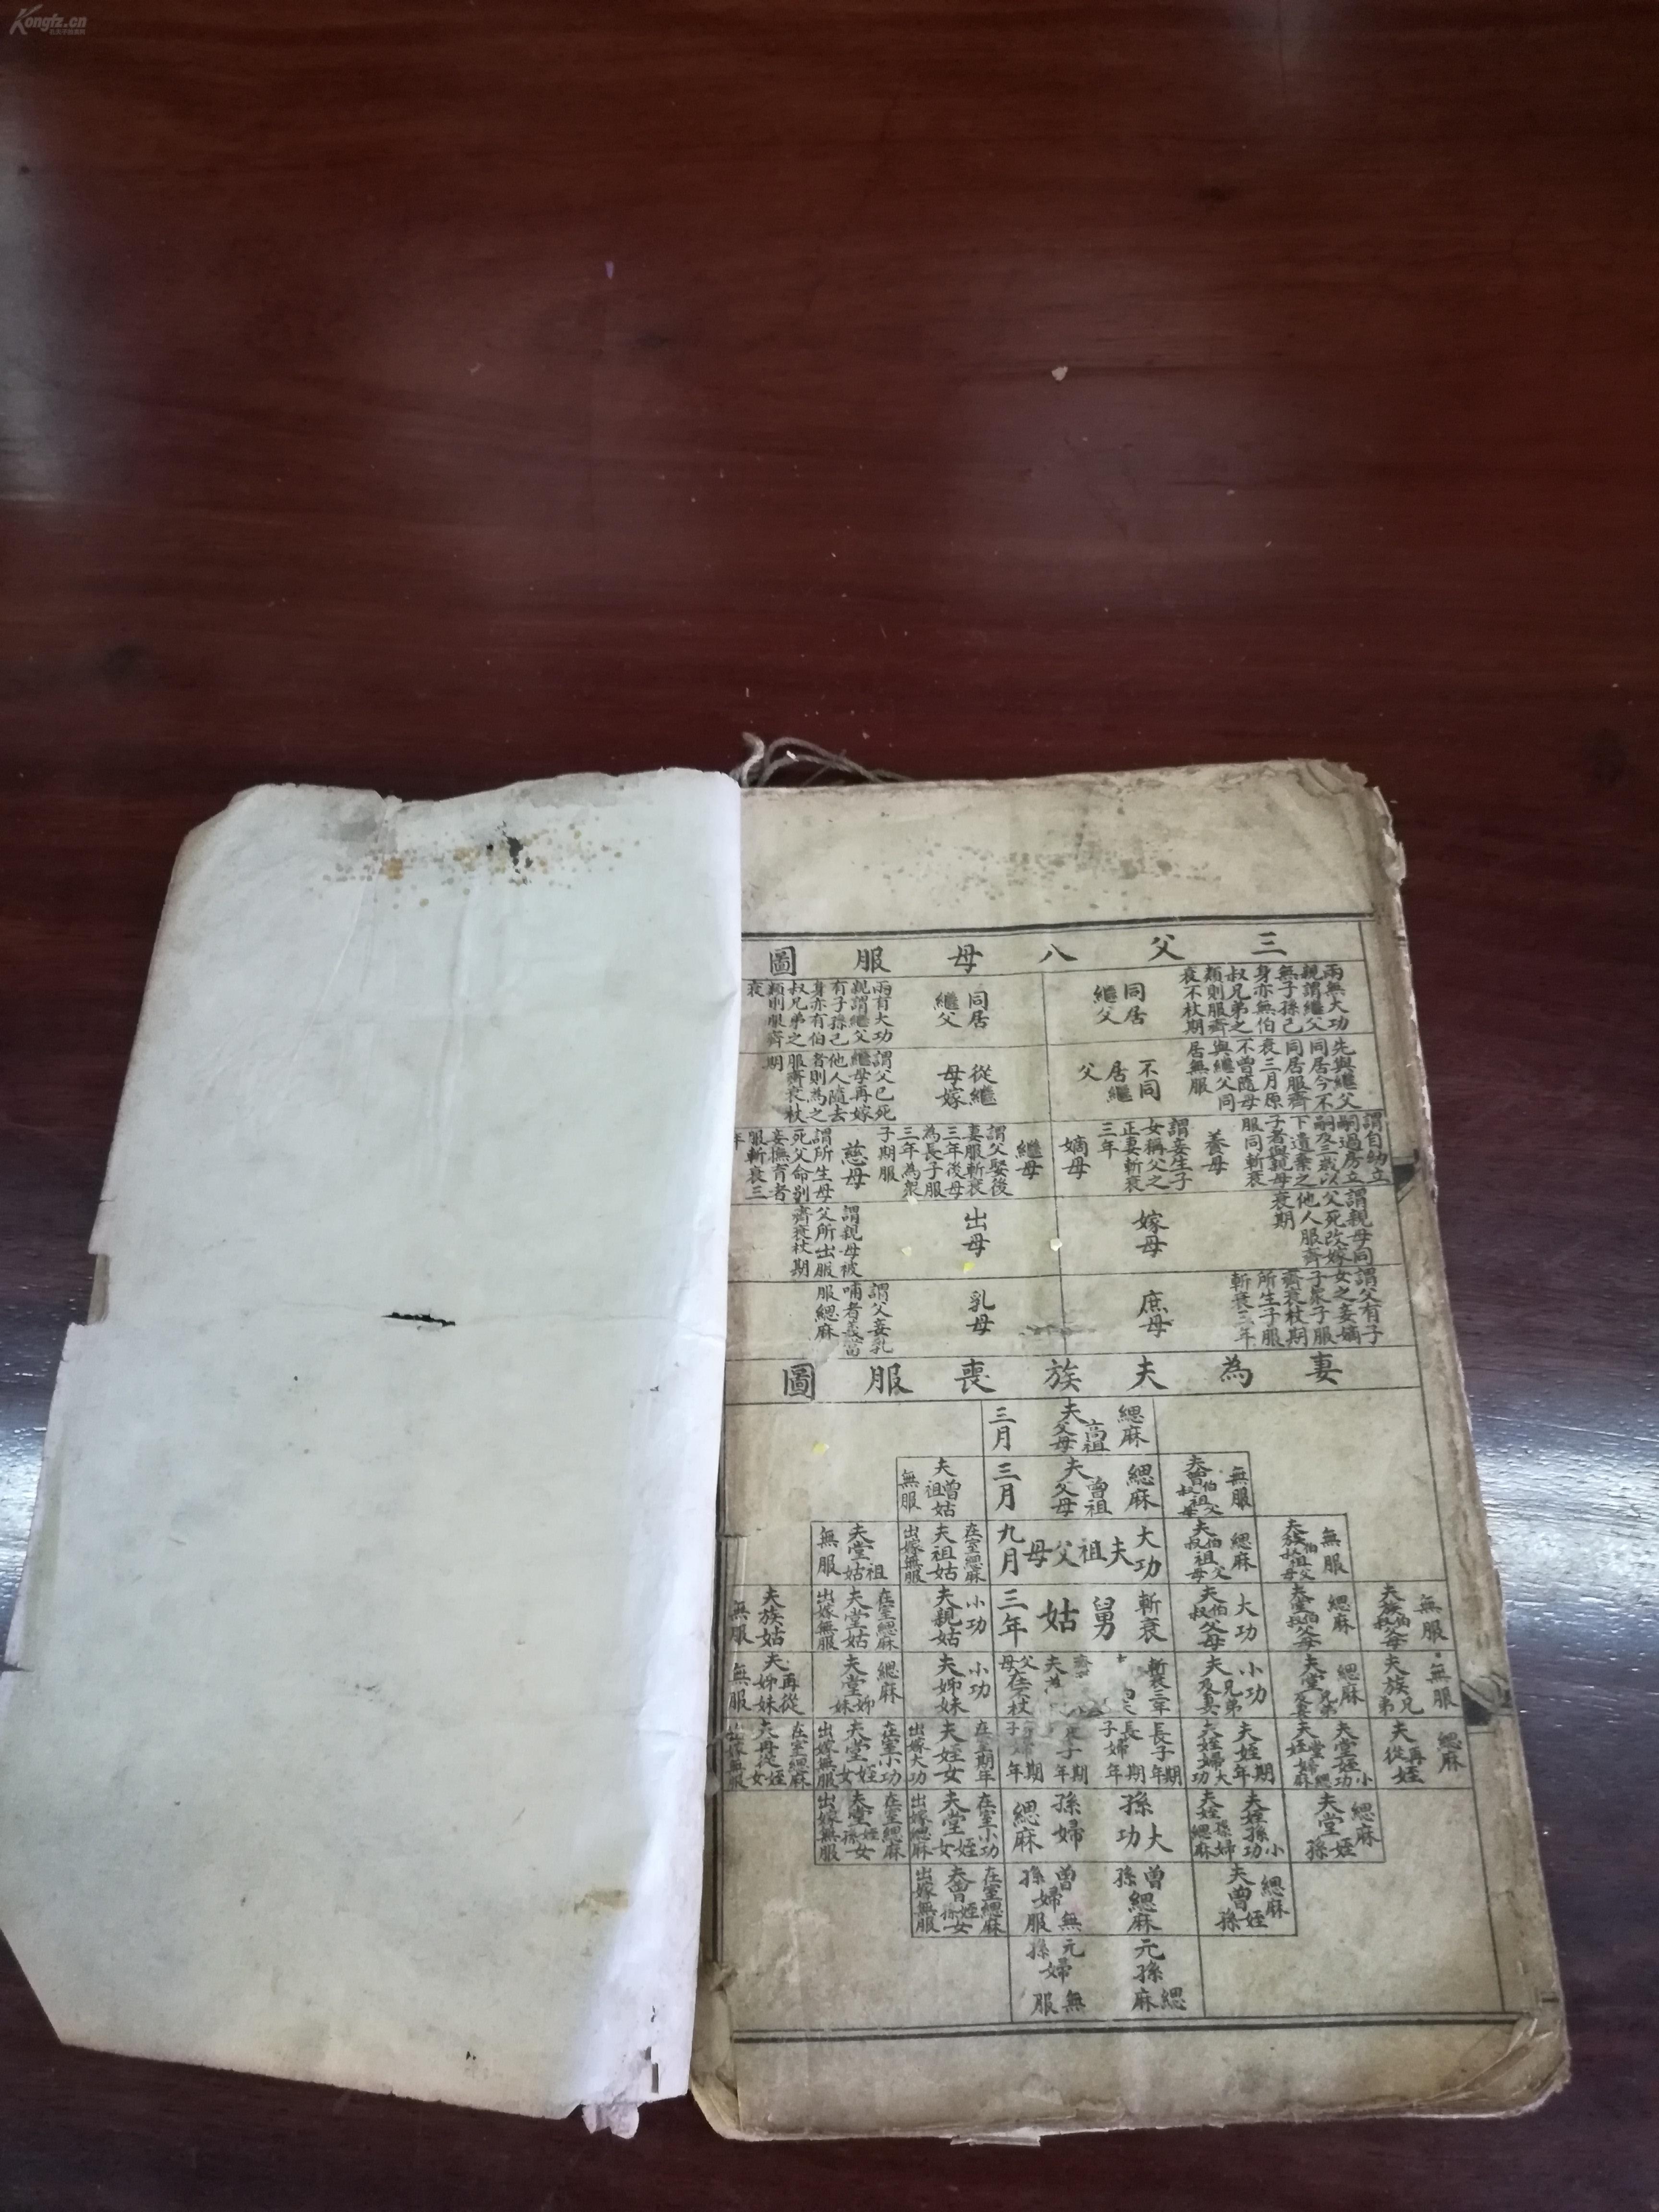 Kongfz.cn
三父八母服圖
兩無大功
親謂繼父
無子孫己
身亦無伯
叔兄弟之
類則服齊
衰不杖期
同居
繼父
兩有大功
親謂繼父
有子孫己
身亦有伯
叔兄弟之
類則服齊
衰
同居
繼父
先與繼父
同居今不
同居服齊
衰三月原
不曾隨母
與繼父同
居無服
不同
居繼
父
從繼
母嫁
謂父已死
繼母再嫁
他人隨去
者則為之
服齊衰杖
期
謂自幼立
嗣過房立
嗣及三歲以
下遺棄之
子者與親母
服同斬衰
養母
謂妾生子
女稱父之
正妻斬衰
三年
嫡母
繼母
謂父娶後
妻服斬衰
三年後母
為長子服
三年為衆
子期服
慈母
謂所生母
死父命別
妾撫育者
服斬衰三
年
謂親母同
父死改嫁
他人服齊
衰期
嫁母
出母
謂親母被
父所出服
齊衰杖期
謂父有子
女之妾嫡
子衆子服
齊衰杖期
所生子服
斬衰三年
庶母
乳母
謂父妾乳
哺者義當
服緦麻
妻為夫族喪服圖
緦麻
夫高祖父母
三月
無服
夫曾伯叔祖父母
緦麻
夫曾祖父母
三月
夫曾祖姑
無服
無服
夫族伯叔祖父母
緦麻
夫伯叔祖父母
大功
夫祖父母
九月
在室緦麻
夫祖姑
出嫁無服
夫堂祖姑
無服
無服
夫族伯叔父母
緦麻
夫堂伯叔父母
大功
夫伯叔父母
斬衰
舅姑
三年
小功
夫親姑
在室緦麻
夫堂姑
出嫁無服
夫族姑
無服
無服
夫族兄弟
緦麻
夫堂兄弟及妻
小功
夫兄弟及妻
斬衰三年
父母在不杖
小功
夫姊妹
緦麻
夫堂姊妹
夫再從姊妹
無服
緦麻
夫再從姪
夫堂姪小功
夫堂姪婦緦麻
夫姪期年
夫姪婦大功
長子期年
長子婦期年
在室期年
夫姪女
出嫁大功
在室小功
夫堂姪女
出嫁無服
在室緦麻
夫再從姪女
出嫁無服
緦麻
夫堂姪孫
夫姪孫小功
夫姪孫婦緦麻
孫大功
孫婦緦麻
在室小功
夫堂姪女
出嫁緦麻
在室緦麻
夫堂姪孫女
出嫁無服
緦麻
夫曾姪孫
曾孫緦麻
曾孫婦無服
在室緦麻
夫曾姪孫女
出嫁無服
元孫緦麻
元孫婦無服